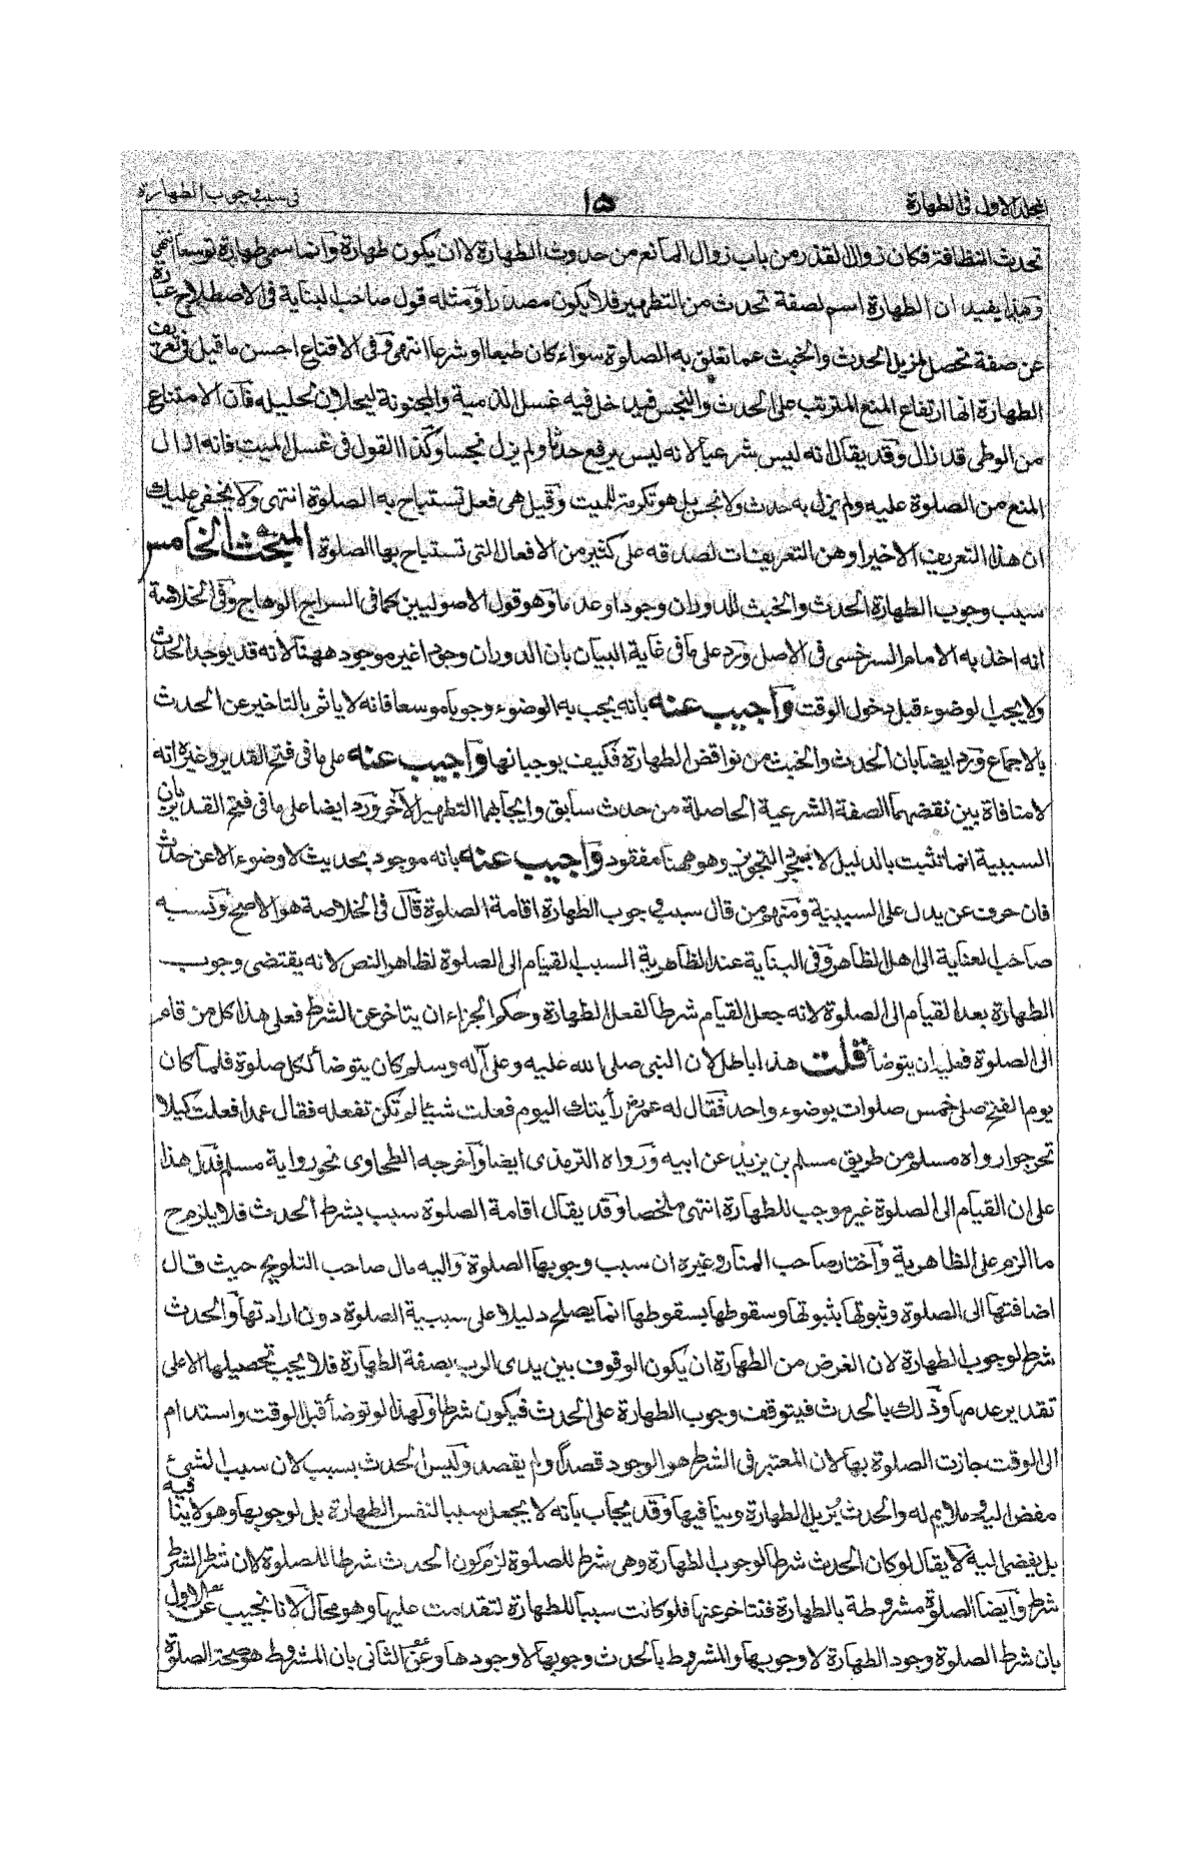 المجلد الاول فى الطهارة
١٥
فى سبب وجوب الطهارة
تحدث النظافة فكان زوال القذر من باب زوال المانع من حدوث الطهارة لا ان يكون طهارة وانما سمى طهارة توسعا انتهى
وهذا يفيد ان الطهارة اسم لصفة تحدث من التطهير فلا يكون مصدرا ومثله قول صاحب البناية فى الاصطلاح عبارة
عن صفة تحصل لمزيل الحدث والخبث عما تعلق به الصلوة سواء كان طبعا او شرعا انتهى وفى الاقناع احسن ما قيل فى تعريف
الطهارة انها ارتفاع المنع المترتب على الحدث والنجس فيدخل فيه غسل الذمية والمجنونة ليحلا لحليله فان الامتناع
من الوطى قد زال وقد يقال انه ليس شرعيا لانه ليس يرفع حدثا ولم يزل نجسا وكذا القول فى غسل الميت فانه ازال
المنع من الصلوة عليه ولم يزل به حدث ولا نجس بل هو تكرمة للميت وقيل هى فعل تستباح به الصلوة انتهى ولا يخفى عليك
ان هذا التعريف الاخير اوهن التعريفات لصدقه على كثير من الافعال التى تستباح بها الصلوة المبحث الخامس
سبب وجوب الطهارة الحدث والخبث للدوران وجودا وعدما وهو قول الاصوليين كما فى السراج الوهاج وفى الخلاصة
انه اخذ به الامام السرخسى فى الاصل ورد على ما فى غاية البيان بان الدوران وجودا غير موجود ههنا لانه قد يوجد الحدث
ولا يجب الوضوء قبل دخول الوقت واجيب عنه بانه يجب به الوضوء وجوبا موسعا فانه لا ياثم بالتاخير عن الحدث
بالاجماع ورد ايضا بان الحدث والخبث من نواقض الطهارة فكيف يوجبانها واجيب عنه على ما فى فتح القدير وغيره انه
لا منافاة بين نقضهما الصفة الشرعية الحاصلة من حدث سابق وايجابهما التطهير الآخر ورد ايضا على ما فى فتح القدير بان
السببية انما تثبت بالدليل لا بمجرد التجويز وهو ههنا مفقود واجيب عنه بانه موجود بحديث لا وضوء الا عن حدث
فان حرف عن يدل على السببية ومنهم من قال سبب وجوب الطهارة اقامة الصلوة قال فى الخلاصة هو الاصح ونسبه
صاحب العناية الى اهل الظاهر وفى البناية عند الظاهرية السبب القيام الى الصلوة لظاهر النص لانه يقتضى وجوب
الطهارة بعد القيام الى الصلوة لانه جعل القيام شرطا لفعل الطهارة وحكم الجزاء ان يتاخر عن الشرط فعلى هذا كل من قام
الى الصلوة فعليه ان يتوضأ قلت هذا باطل لان النبى صلى الله عليه وعلى آله وسلم كان يتوضأ لكل صلوة فلما كان
يوم الفتح صلى خمس صلوات بوضوء واحد فقال له عمر رأيتك اليوم فعلت شيئا لم تكن تفعله فقال عمدا فعلت كيلا
تحرجوا رواه مسلم من طريق مسلم بن يزيد عن ابيه ورواه الترمذى ايضا وآخرجه الطحاوى نحو رواية مسلم فدل هذا
على ان القيام الى الصلوة غير موجب للطهارة انتهى ملخصا وقد يقال اقامة الصلوة سبب بشرط الحدث فلا يلزم ح
ما الزم على الظاهرية وآختار صاحب المنار وغيره ان سبب وجوبها الصلوة واليه مال صاحب التلويح حيث قال
اضافتها الى الصلوة وثبوتها بثبوتها وسقوطها بسقوطها انما يصلح دليلا على سببية الصلوة دون ارادتها والحدث
شرط لوجوب الطهارة لان الغرض من الطهارة ان يكون الوقوف بين يدى الرب بصفة الطهارة فلا يجب تحصيلها الا على
تقدير عدمها وذلك بالحدث فيتوقف وجوب الطهارة على الحدث فيكون شرطا ولهذا لو توضأ قبل الوقت واستدام
الى الوقت جازت الصلوة بها لان المعتبر فى الشرط هو الوجود قصدا ولم يقصد وليس الحدث بسبب لان سبب الشئ
مفض اليه ملايم له والحدث يزيل الطهارة وينافيها وقد يجاب بانه لا يجعل سببا لنفس الطهارة بل لوجوبها وهو لا ينافيه
بل يفضى اليه لا يقال لو كان الحدث شرطا لوجوب الطهارة وهى شرط للصلوة لزم كون الحدث شرطا للصلوة لان شرط الشرط
شرط وايضا الصلوة مشروطة بالطهارة فتتاخر عنها فلو كانت سببا للطهارة لتقدمت عليها وهو محال لانا نجيب عن الاول
بان شرط الصلوة وجود الطهارة لا وجوبها والمشروط بالحدث وجوبها لا وجودها وعن الثانى بان المشروط هو صحة الصلوة